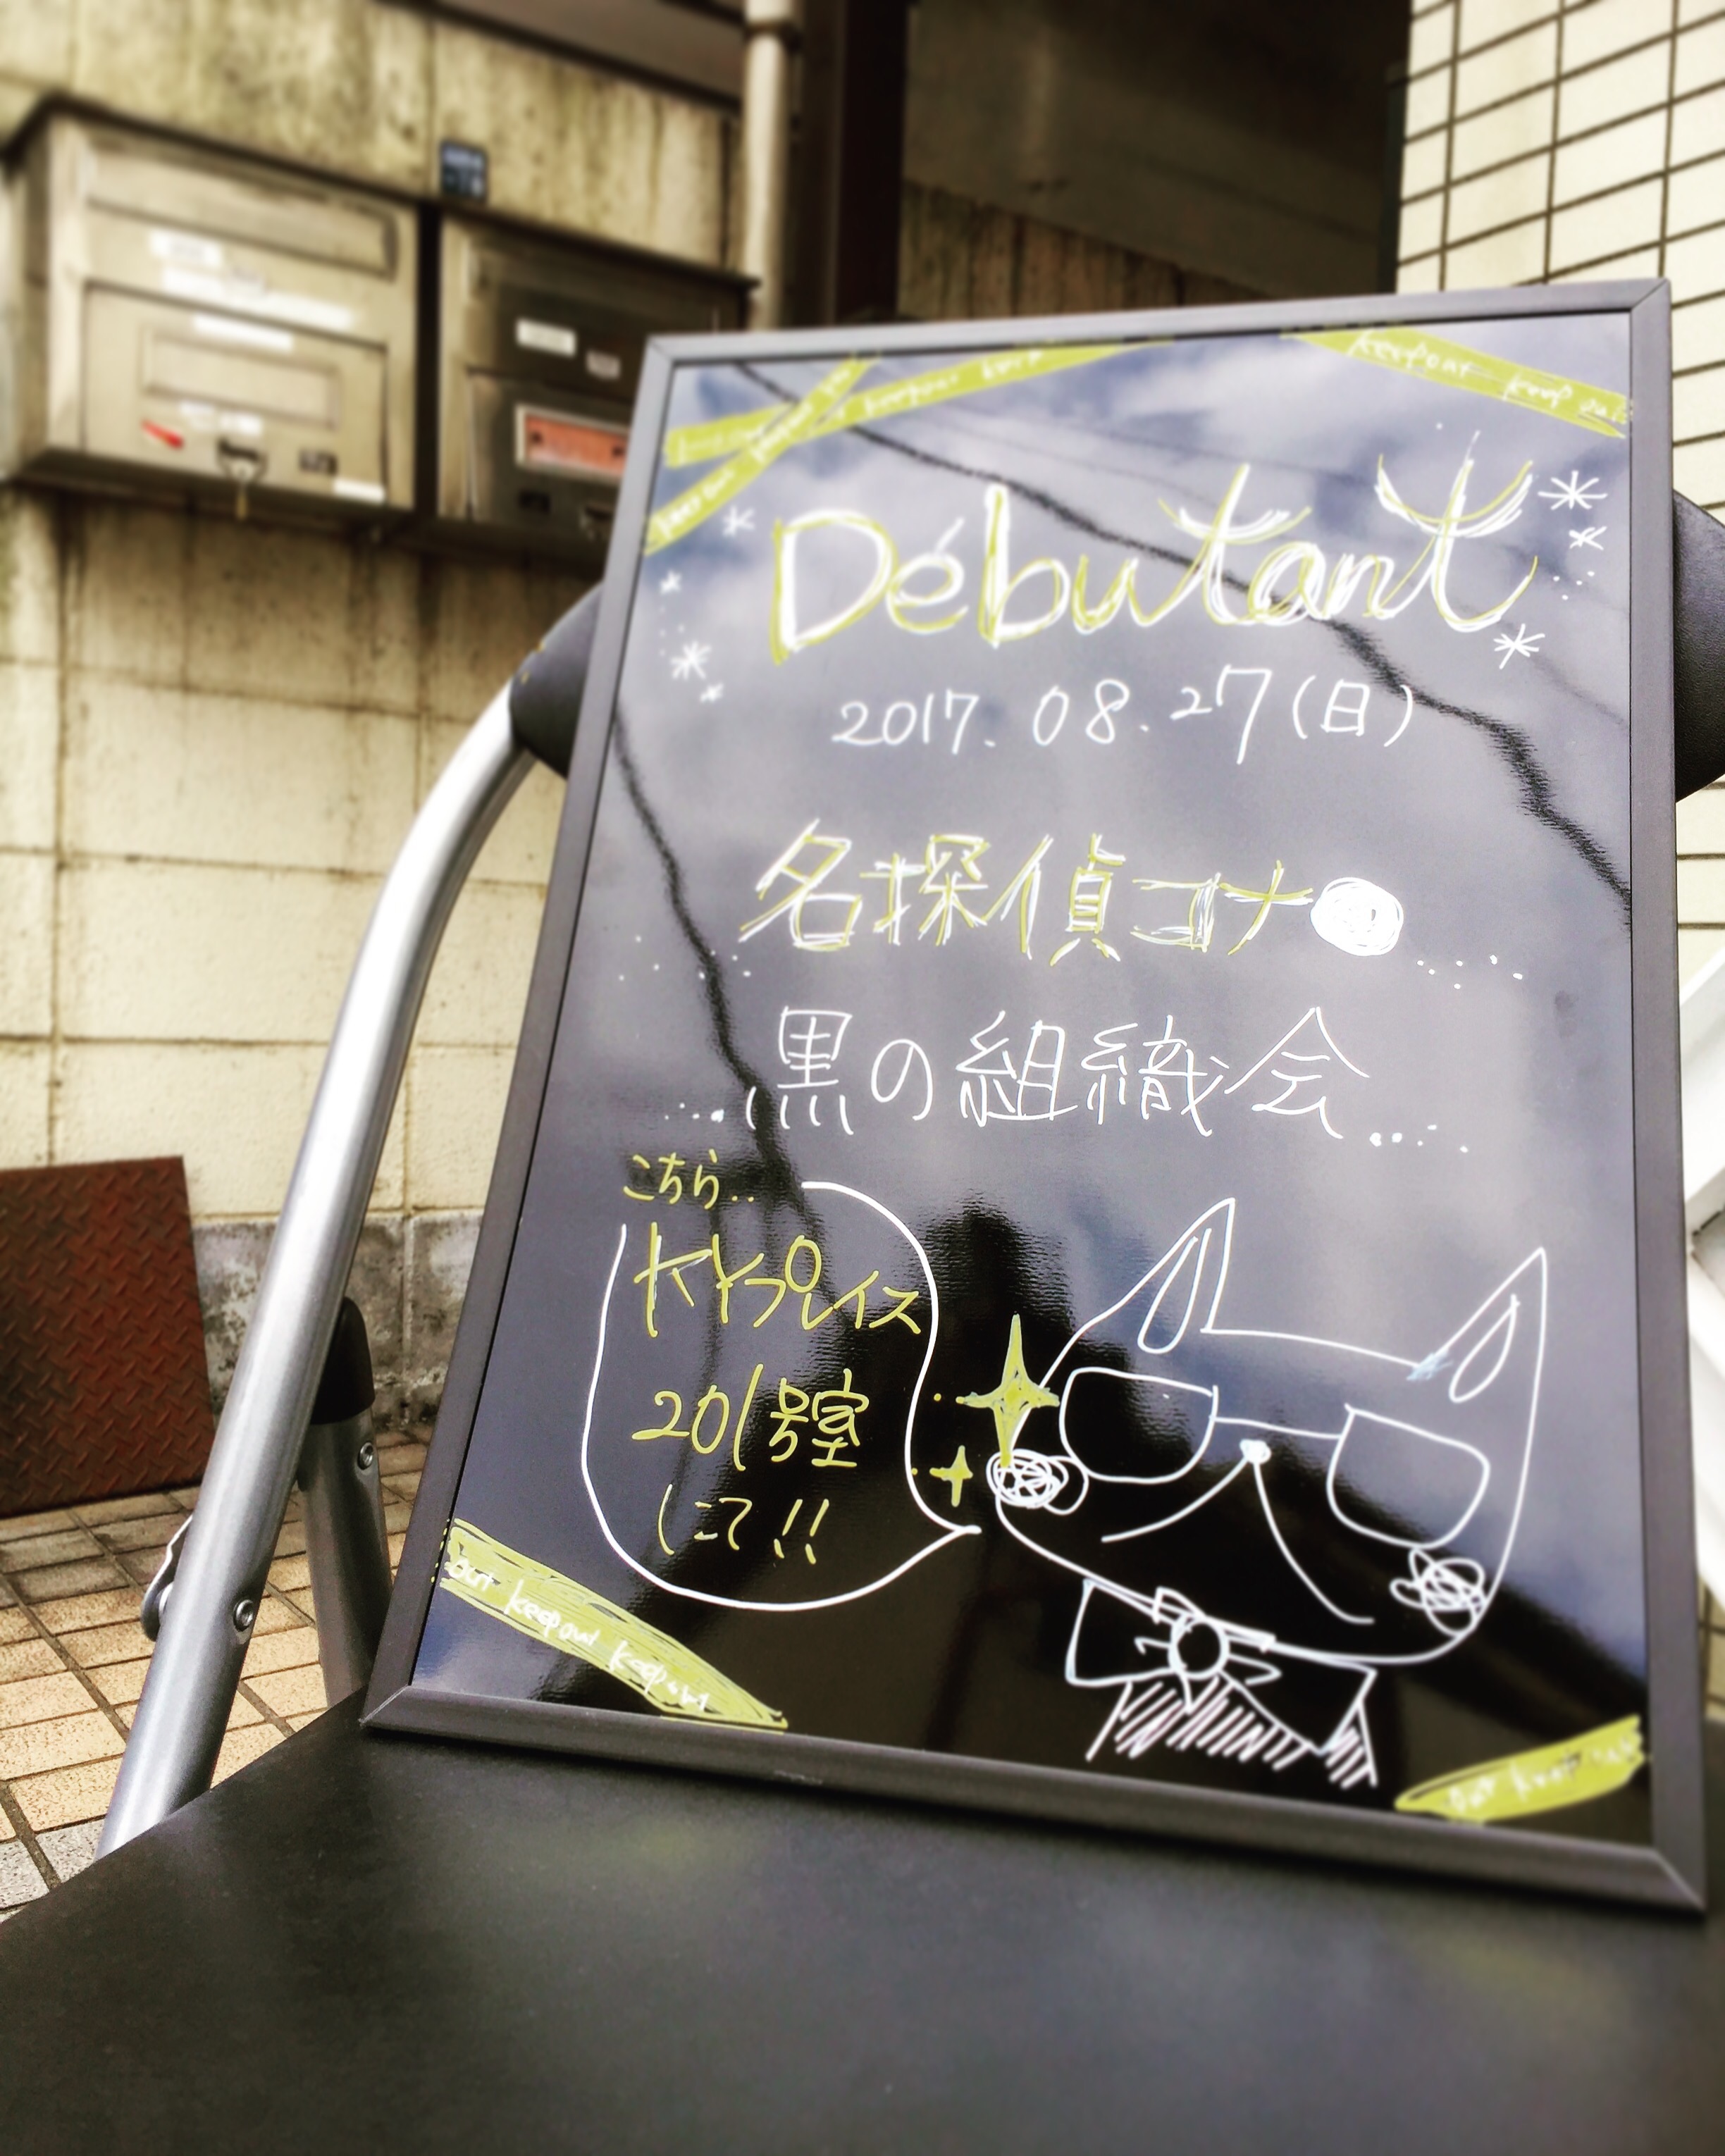 keepout keep
keepout keep out
Débutant
2017.08.27(日)
名探偵コナ●
黒の組織会
こちら..
KYプレイス
201号室
にて!!
out keepout keepout
out keep out